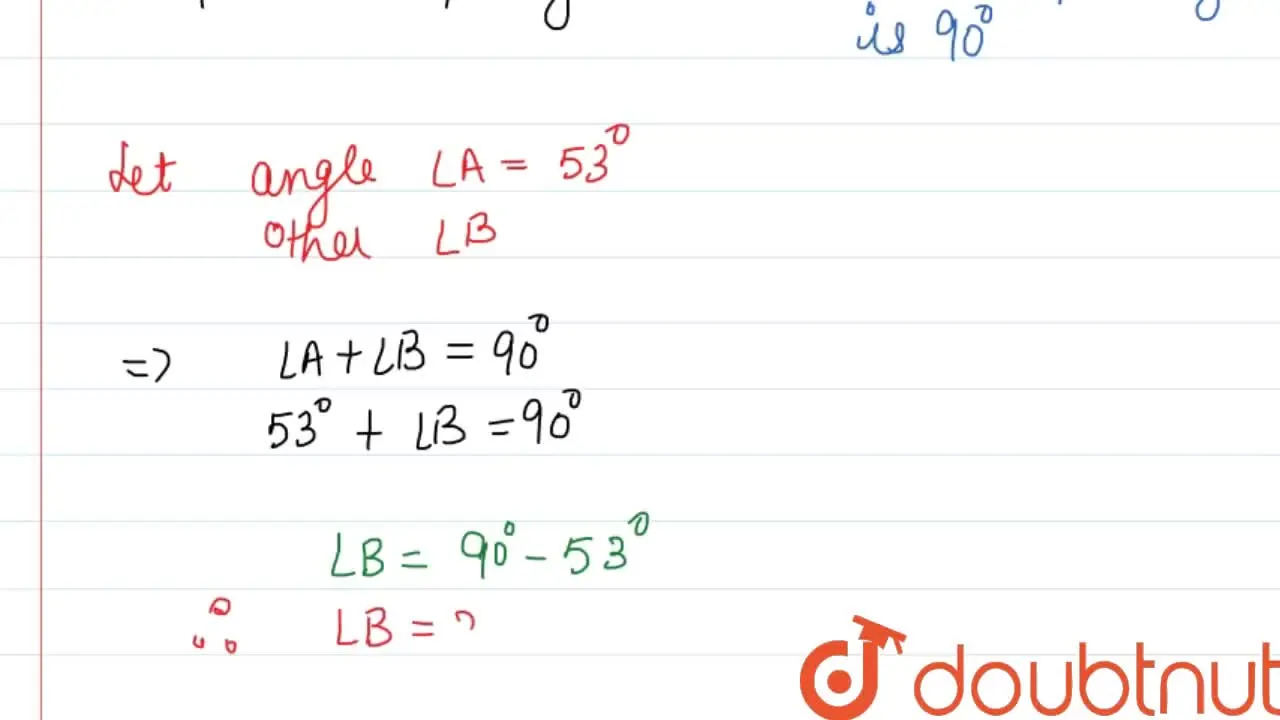 is 90°
Let angle ∠A = 53°
Other ∠B
=> ∠A + ∠B = 90°
53° + ∠B = 90°
∠B = 90° - 53°
∴ ∠B =
doubtnut